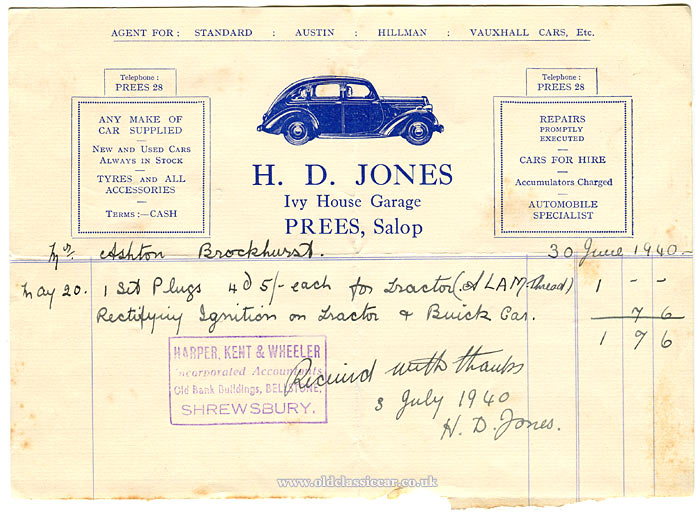 AGENT FOR : STANDARD : AUSTIN : HILLMAN : VAUXHALL CARS, Etc.
Telephone :
PREES 28
ANY MAKE OF
CAR SUPPLIED
—
New and Used Cars
Always in Stock
—
TYRES and ALL
ACCESSORIES
—
Terms :—CASH
H. D. JONES
Ivy House Garage
PREES, Salop
Telephone :
PREES 28
REPAIRS
PROMPTLY
EXECUTED
—
CARS FOR HIRE
—
Accumulators Charged
—
AUTOMOBILE
SPECIALIST
Mr. Ashton Brockhurst. 30 June 1940
May 20. 1 Set Plugs 4 @ 5/- each for Tractor (ALAM Thread) 1 - -
Rectifying Ignition on Tractor & Buick Car. 7 6
1 7 6
HARPER, KENT & WHEELER
Incorporated Accountants
Old Bank Buildings, BELLSTONE,
SHREWSBURY.
Received with thanks
3 July 1940
H. D. Jones.
www.oldclassiccar.co.uk